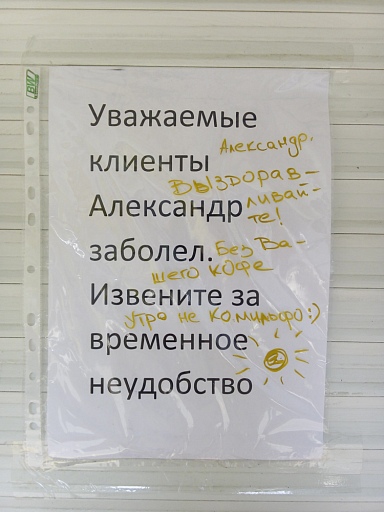 BW
Уважаемые
клиенты
Александр
заболел.
Извените за
временное
неудобство
Александр,
выздорав-
ливай-
те!
Без Ва-
шего кофе
утро не комильфо:)